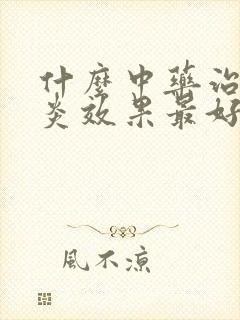 什麼中藥治
炎效果最好
風不涼